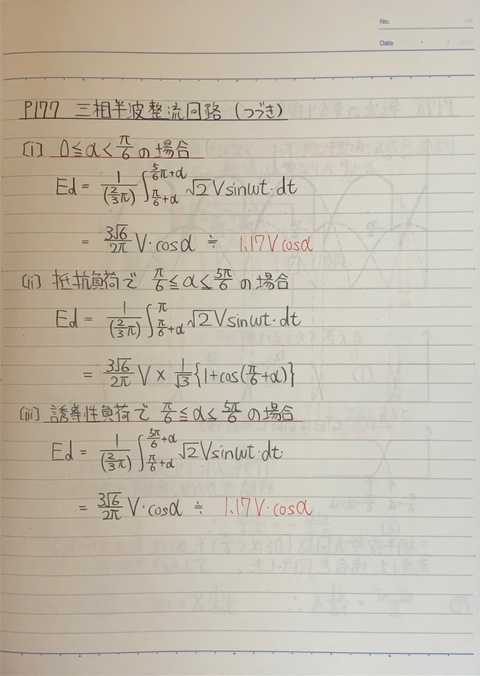 No.
Date
P177 三相半波整流回路 (つづき)
(i) 0≦α<π/6 の場合
Ed = 1/(2/3 π) ∫_{π/6+α}^{5/6 π+α} √2 V sinωt・dt
= 3√6/2π V・cosα ≒ 1.17V cosα
(ii) 抵抗負荷で π/6 ≦α≦ 5π/6 の場合
Ed = 1/(2/3 π) ∫_{π/6+α}^{π} √2 V sinωt・dt
= 3√6/2π V × 1/√3 {1+cos(π/6+α)}
(iii) 誘導性負荷で π/6 ≦α≦ 5π/6 の場合
Ed = 1/(2/3 π) ∫_{π/6+α}^{5π/6+α} √2 V sinωt・dt
= 3√6/2π V・cosα ≒ 1.17V・cosα